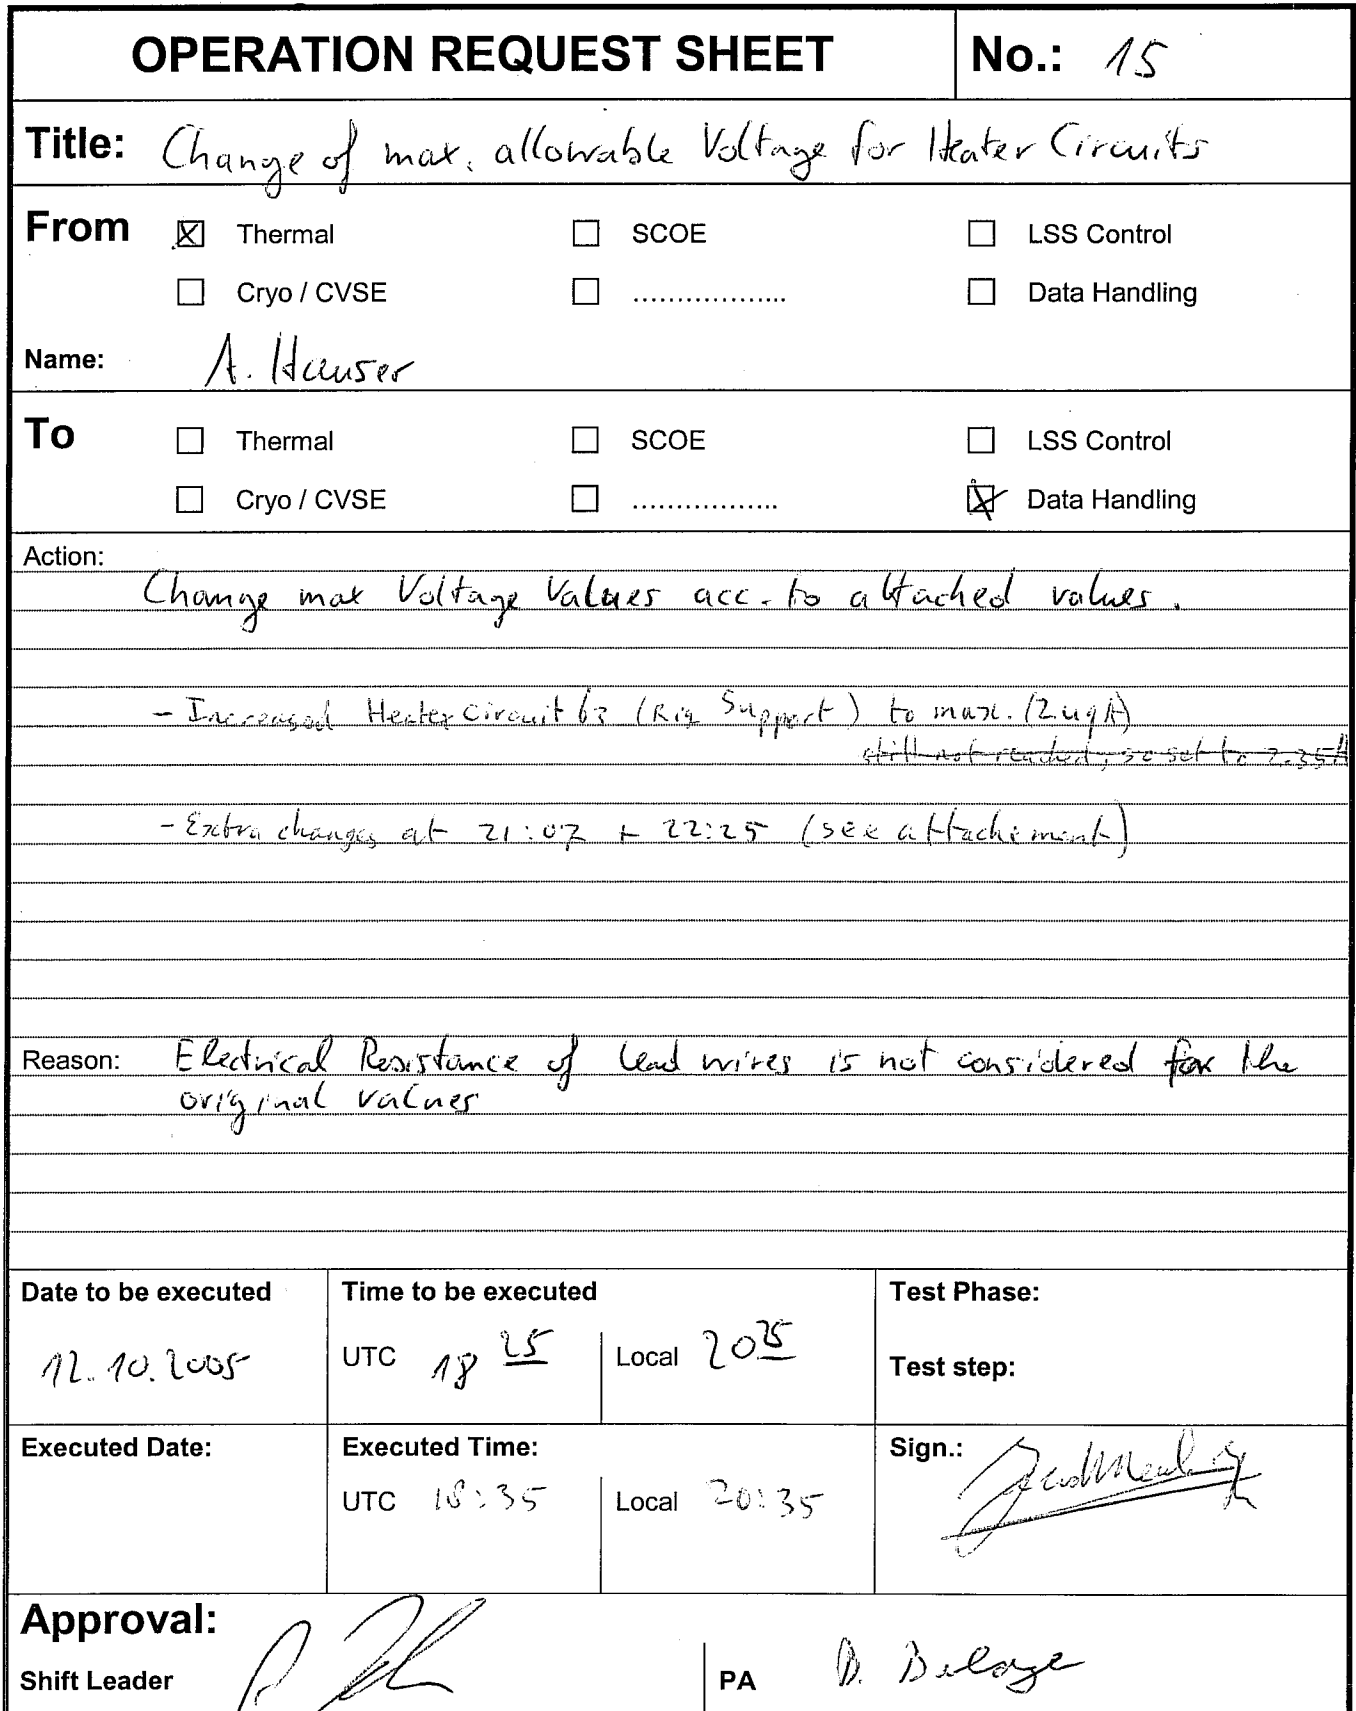 OPERATION REQUEST SHEET No.: 15
Title: Change of max. allowable Voltage for Heater Circuits
From ☒ Thermal ☐ SCOE ☐ LSS Control
☐ Cryo / CVSE ☐ .................. ☐ Data Handling
Name: A. Hauser
To ☐ Thermal ☐ SCOE ☐ LSS Control
☐ Cryo / CVSE ☐ ................. ☒ Data Handling
Action:
Change max Voltage Values acc. to attached values.
- Increased Heater circuit 63 (Rig Support) to max. (2.49A)
still not reached, so set to 2.35A
- Extra changes at 21:07 + 22:25 (see attachement)
Reason: Electrical Resistance of lead wires is not considered for the
original values
Date to be executed Time to be executed Test Phase:
12.10.2005 UTC 18 25 Local 20 25
Test step:
Executed Date: Executed Time: Sign.:
UTC 18:35 Local 20:35
Approval:
Shift Leader PA